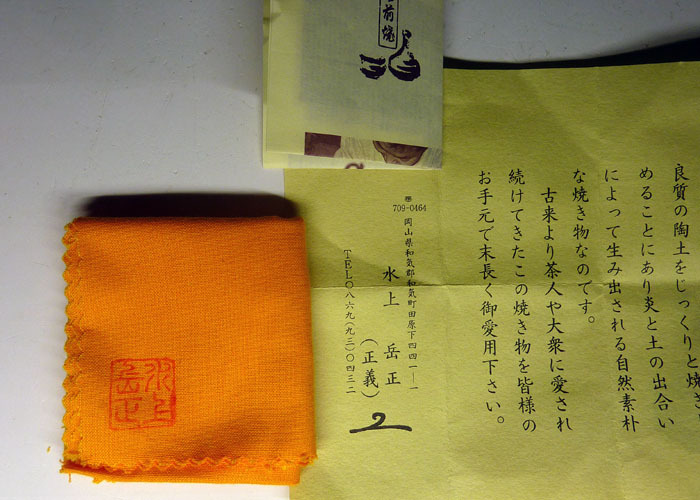 前焼
良質の陶土をじっくりと焼き
めることにあり炎と土の出合い
によって生み出される自然素朴
な焼き物なのです。
古来より茶人や大衆に愛され
続けてきたこの焼き物を皆様の
お手元で末長く御愛用下さい。
〒709-0464
岡山県和気郡和気町田原下四四一ー一
水上 岳正
(正義)
TEL〇八六九(九三)〇四三二
水上
岳正